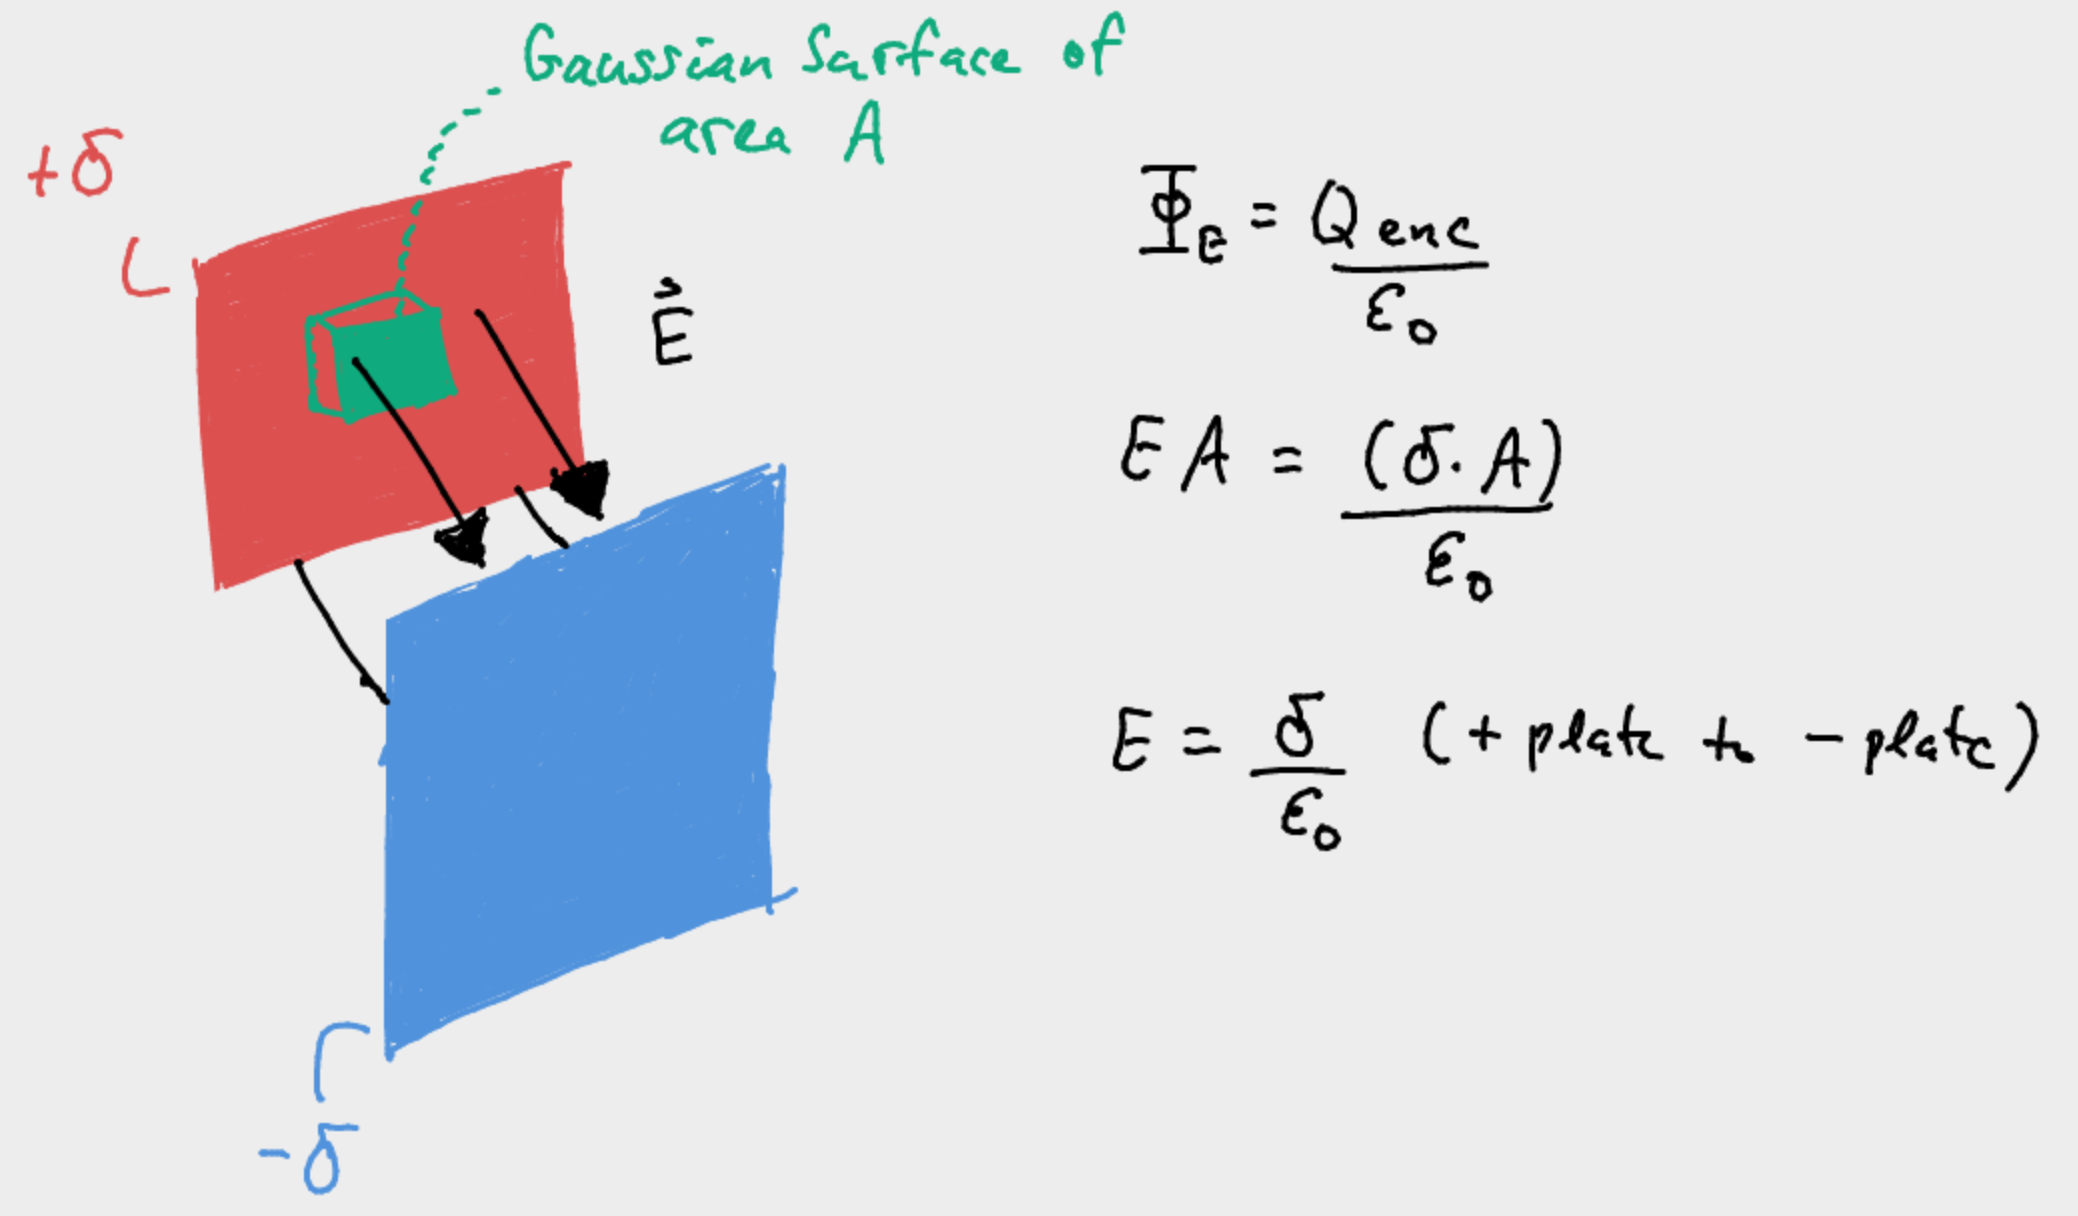 Gaussian Surface of
area A
+δ
E⃗
Φ_E = Q enc / ε₀
E A = (δ · A) / ε₀
E = δ / ε₀ (+ plate to - plate)
-δ